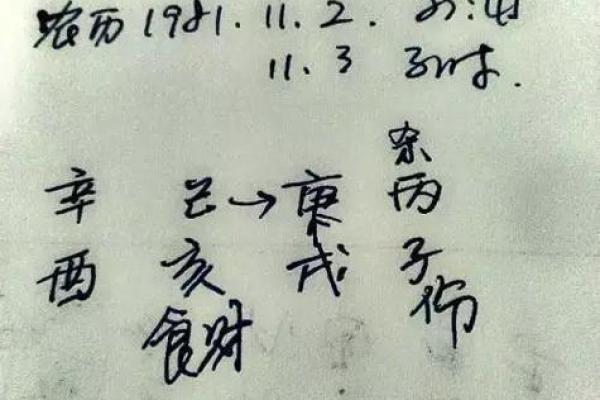 农历1981.11.2.
11.3 子时.
杀
辛 己→庚 丙
酉 亥 戌 子
食财 伤